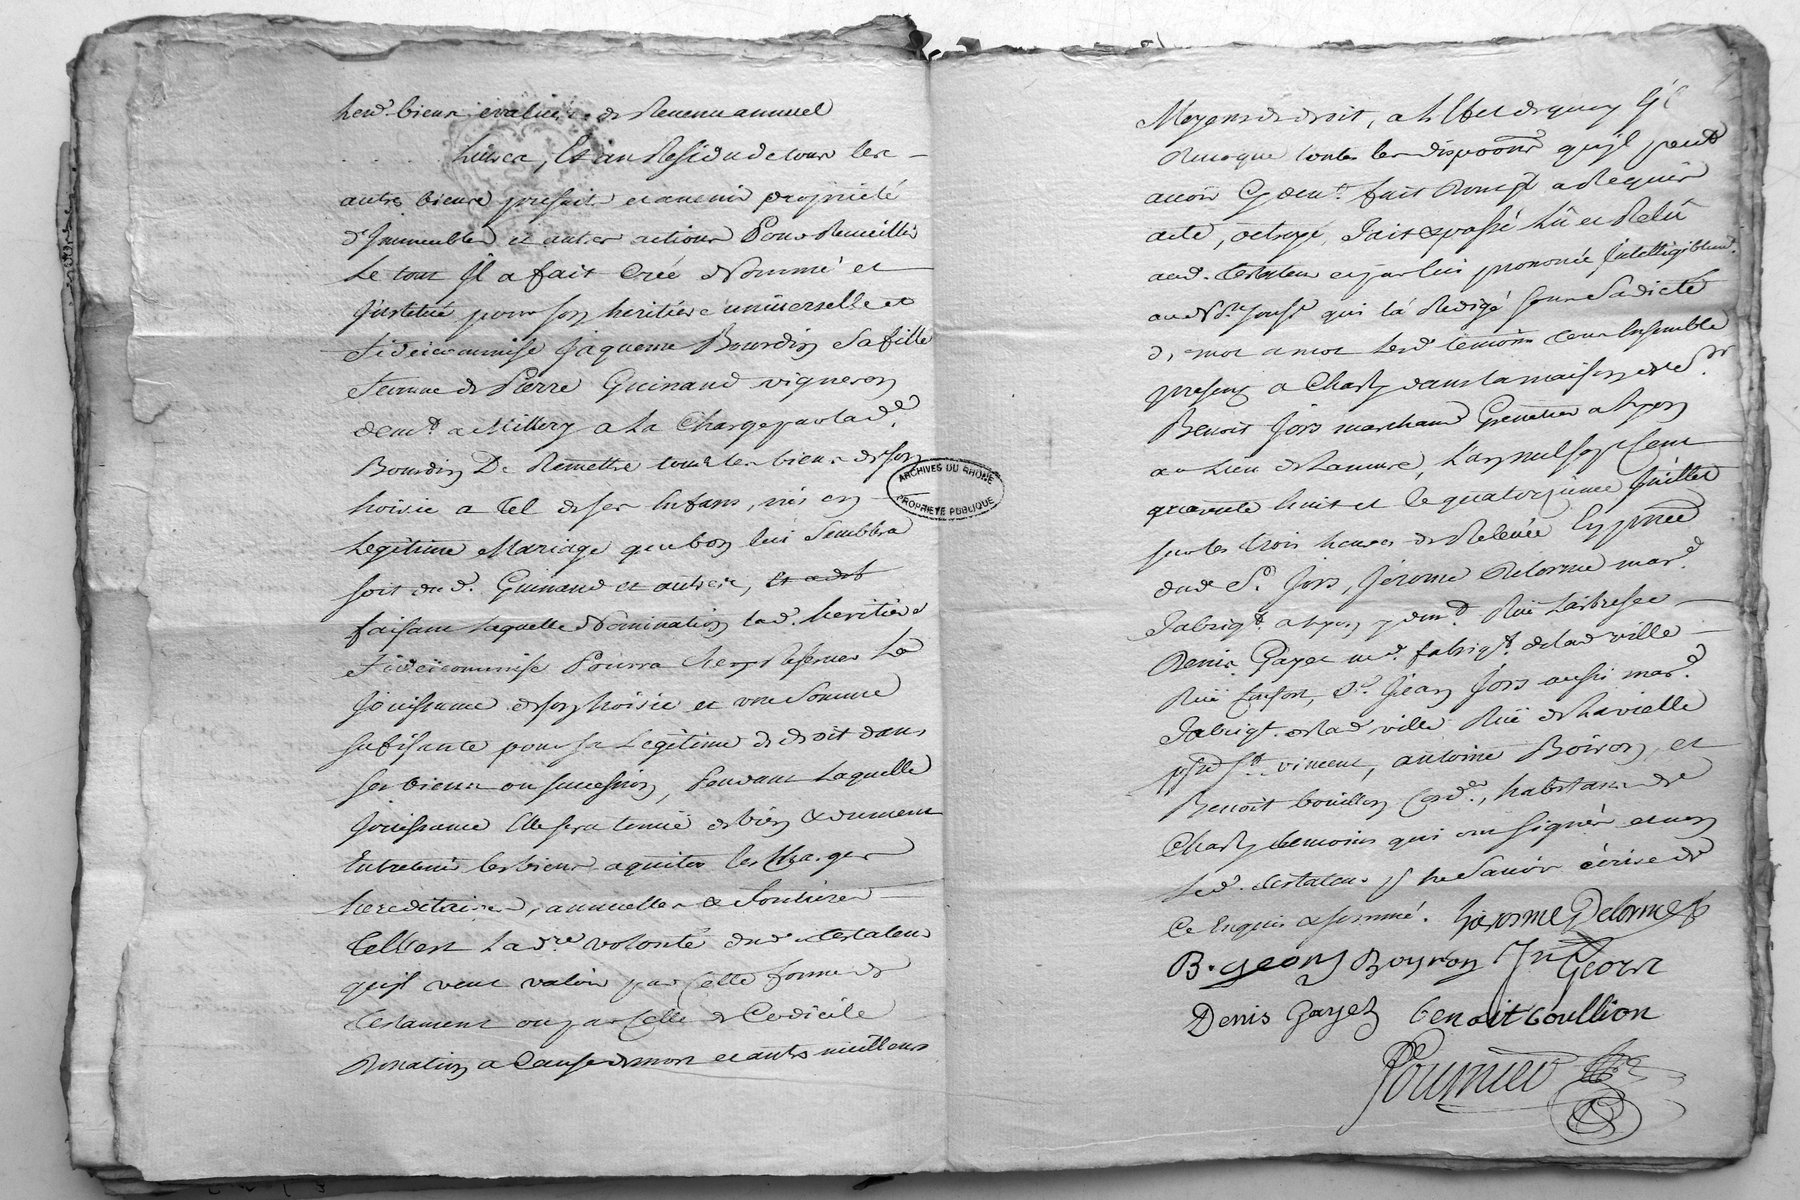 lesd. biens évalués de Revenu annuel
Livres, Et au Residu de tous les
autres biens présents et avenir proprieté
d'Immeubles et autres actions Pour Recueillir
Le tout Il a fait Créé Nommé et
Institué pour son heritiere universelle et
Fideicommise Jaqueme Bourdin sa fille
femme de Pierre Guinand vigneron
demt. a Millery a La Charge par lad.
Bourdin De Remettre tous les biens de son
hoirie a Tel de ses Enfans, nés en
Legitime Mariage que bon lui Semblera
soit dud. Guinand et autres,
faisant Laquelle Nomination lad. heritiere
Fideicommise Pourra Reserver La
Joüissance de son hoirie et une Somme
sufisante pour sa Legitime de droit dans
ses biens ou succession, Pendant Laquelle
Joüissance Elle sera tenuë de bien & dument
Entretenir les biens aquiter les Charges
hereditaires, annuelles & foncieres
Telle est La dre. volonté dud. testateur
qu'il veut valoir par Celle forme de
testament ou par Celle de Codicile
Donation a Cause de mort et autres meilleurs
Moyens de droit, a L'effet de quoy Il
Revoque toutes les dispoons. qu'il peut
avoir Cy devt. fait Dont Il a Requis
acte, octroyé, fait & passé Lû et Relû
aud. testateur et par lui prononcé Intelligiblemt.
aud. Nre. soussé. qui l'a Redigé sous sa dicté
de mot a mot Lesd. temoins tous Ensemble
presens a Charly dans la maison de Sr.
Benoit Jors marchand Grenetier a Lyon
au Lieu de Lamure, L'an mil sept Cent
quarante huit et le quatorzieme Juillet
sur les trois heures de Relevée En présce.
dud. Sr. Jors, Jérome Delorme mard.
fabriqt. a Lyon y demt. Ruë Larbresec
Denis Gayet md. fabriqt. de lad. ville
Ruë Confort, Sr. Jean Jors aussi mard.
fabriqt. de lad. ville Ruë de Lavielle
psse. St. vincent, antoine Boiron, et
Benoit bouillon Cordr., habitans de
Charly temoins qui ont signés et non
Led. testateur pr. ne Savoir écrire de
Ce Enquis & sommé. hierosme Delorme
B. georg Boyron Jn Geors
Denis gayet benoit boullion
Fournier
ARCHIVES DU RHONE
PROPRIÉTÉ PUBLIQUE